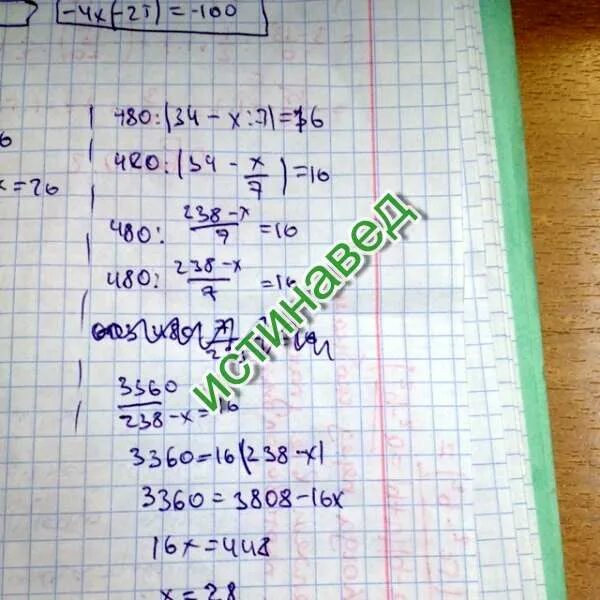 -4x(-25) = -100
480:(34 - x:7) = 16
6
420:(34 - x/7) = 16
x = 26
480: 238-x/7 = 16
480: 238-x/7 = 16
3360/238-x = 16
3360 = 16(238-x)
3360 = 3808-16x
16x = 448
x = 28
истинавед